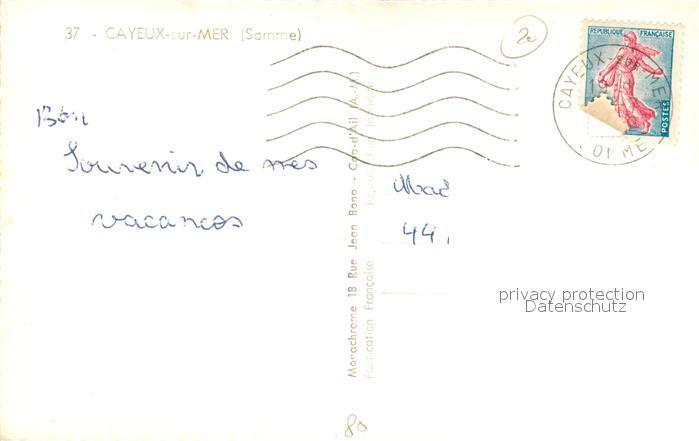 37 - CAYEUX-sur-MER (Somme)
20
RÉPUBLIQUE FRANÇAISE
POSTES
CAYEUX-SUR-MER
SOMME
Bon
Souvenir de mes
vacances
44,
Monachrome 18 Rue Jean Bono - Cap-d'Ail (A.-M.)
Fabrication Française
Reproduction Interdite
privacy protection
Datenschutz
80